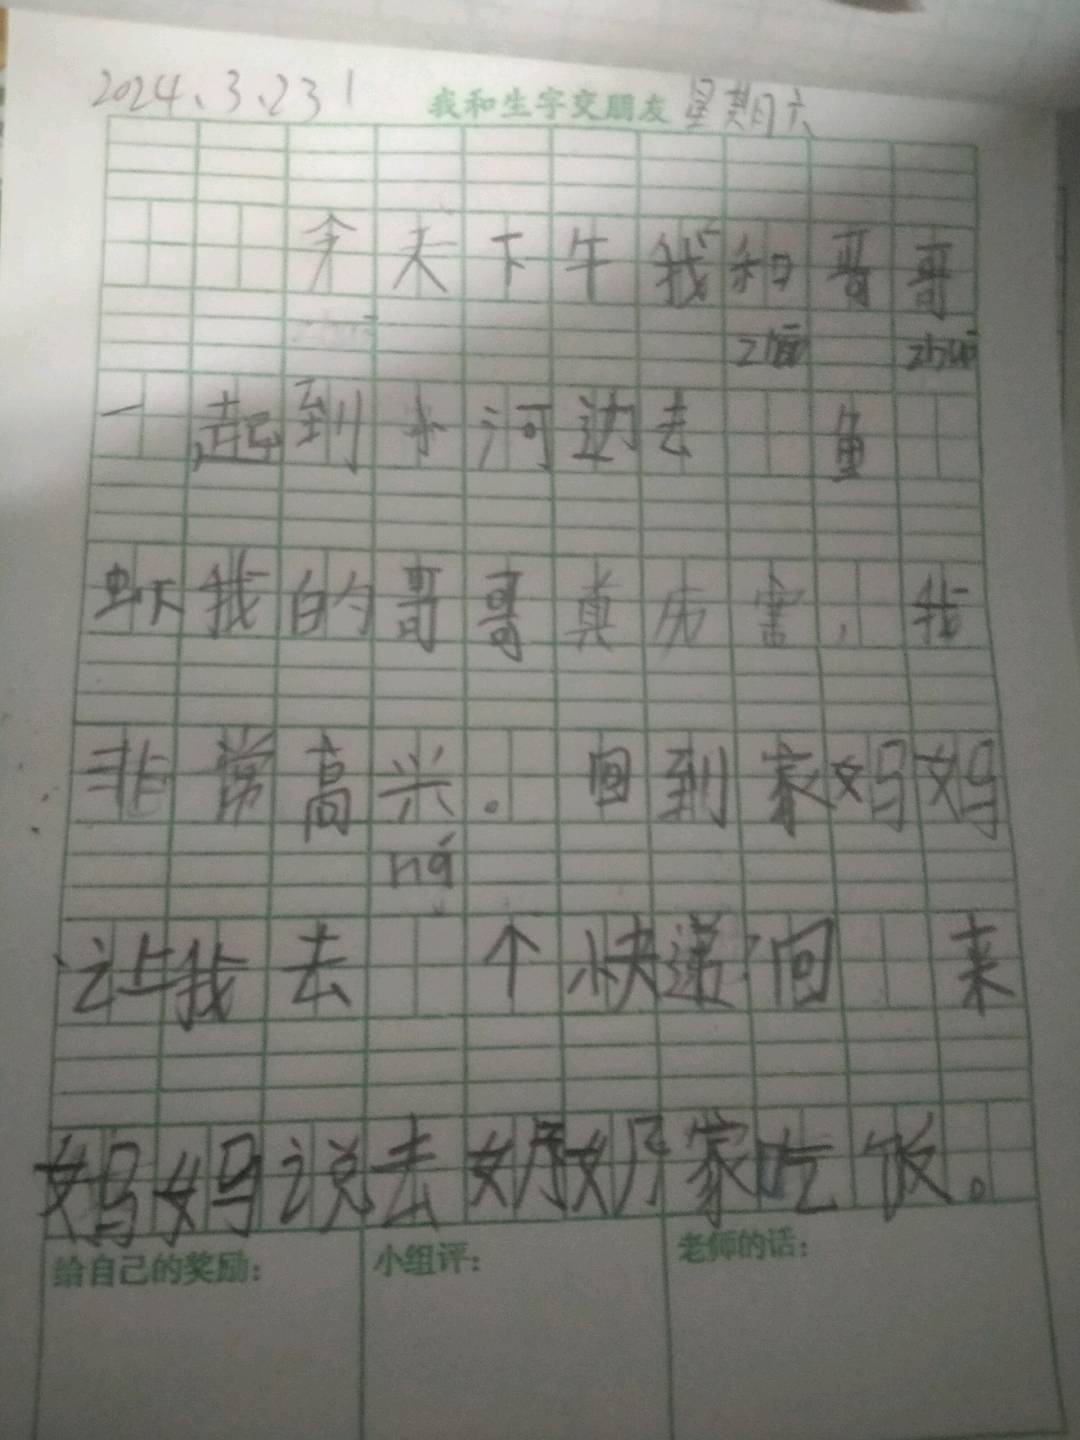 2024.3.23 我和生字交朋友 星期六
今天下午我和哥哥
一起到小河边去 鱼
虾我的哥哥真历害,我
非常高兴。回到家妈妈
ná
让我去 个快递回 来
妈妈说去奶奶家吃饭。
给自己的奖励: 小组评: 老师的话: